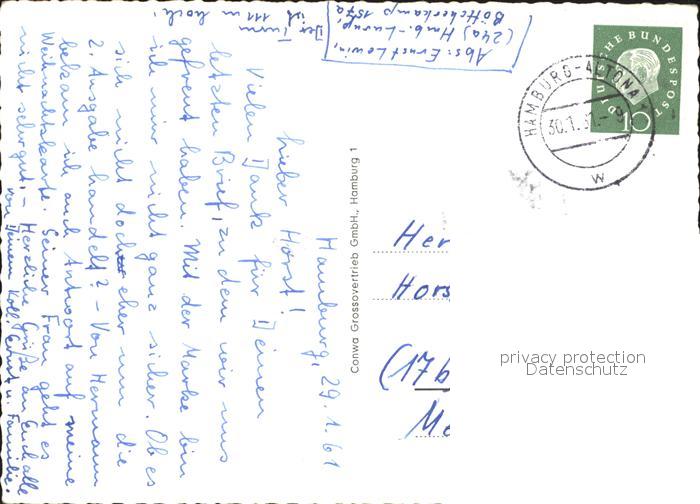 Abs: Ernst Lewin,
(24a) Hmb-Lurup,
Böttcherkamp 157a
Der Turm
ist 111 m hoch.
Hamburg, 29.1.61
Lieber Horst!
Vielen Dank für Deinen
letzten Brief, zu dem wir uns
gefreut haben. Mit der Marke bin
ich mir nicht ganz sicher. Ob es
sich nicht doch eher um die
2. Ausgabe handelt? - Von Hermann
bekam ich auch Antwort auf meine
Weihnachtskarte. Seiner Frau geht es
nicht sehr gut. - Herzliche Grüße an Euch alle
von Deinem Koll. Ernst u. Familie.
Conwa Grossovertrieb GmbH., Hamburg 1
DEUTSCHE BUNDESPOST
10
HAMBURG-ALTONA
30.1.61.-9
w
Her
Hors
(17b
Me
privacy protection
Datenschutz